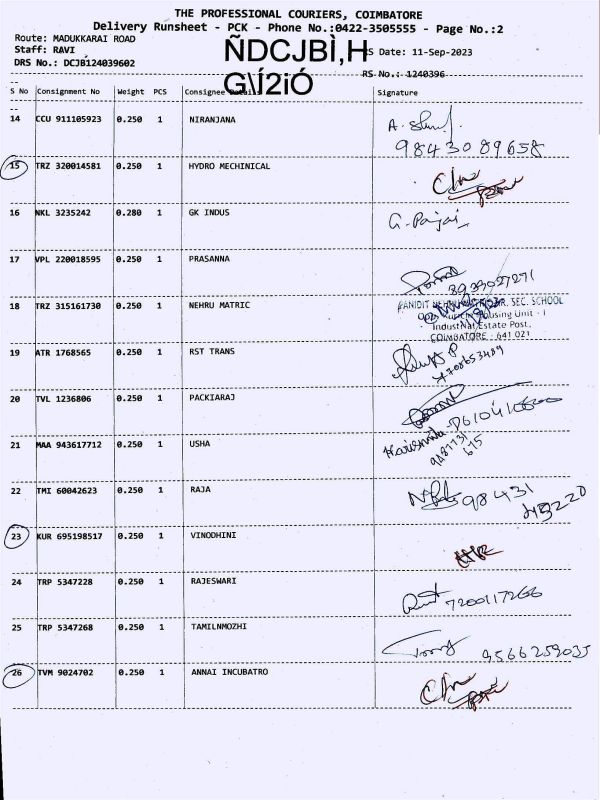 THE PROFESSIONAL COURIERS, COIMBATORE
Delivery Runsheet - PCK - Phone No.:0422-3505555 - Page No.:2
Route: MADUKKARAI ROAD
Staff: RAVI
DRS No.: DCJB124039602
ÑDCJBÌ,H
G\Í2iÓ
RS Date: 11-Sep-2023
RS No.: 1240396
S No Consignment No Weight PCS Consignee Details Signature
14 CCU 911105923 0.250 1 NIRANJANA
9843089658
15 TRZ 320014581 0.250 1 HYDRO MECHINICAL
16 NKL 3235242 0.280 1 GK INDUS
17 VPL 220018595 0.250 1 PRASANNA
18 TRZ 315161730 0.250 1 NEHRU MATRIC
SEC. SCHOOL
Housing Unit - I
Estate Post,
COIMBATORE - 641 021
19 ATR 1768565 0.250 1 RST TRANS
20 TVL 1236806 0.250 1 PACKIARAJ
21 MAA 943617712 0.250 1 USHA
22 TMI 60042623 0.250 1 RAJA
98431
23 KUR 695198517 0.250 1 VINODHINI
24 TRP 5347228 0.250 1 RAJESWARI
25 TRP 5347268 0.250 1 TAMILNMOZHI
9566259035
26 TVM 9024702 0.250 1 ANNAI INCUBATRO